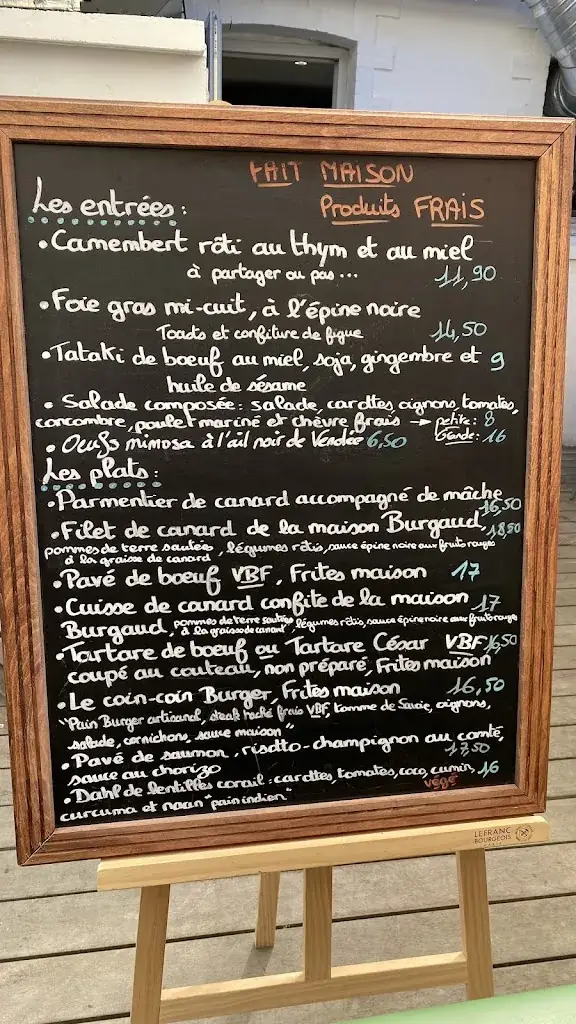 FAIT MAISON
Les entrées :
Produits FRAIS
• Camembert rôti au thym et au miel
à partager ou pas... 11,90
• Foie gras mi-cuit, à l'épine noire
Toasts et confiture de figue 14,50
• Tataki de boeuf au miel, soja, gingembre et 9
huile de sésame
• Salade composée : salade, carottes, oignons, tomates,
concombre, poulet mariné et chèvre frais → petite : 8
Grande : 16
• Oeufs mimosa à l'ail noir de Vendée 6,50
Les plats :
• Parmentier de canard accompagné de mâche 16,50
• Filet de canard de la maison Burgaud, 18,50
pommes de terre sautées, légumes rôtis, sauce épine noire aux fruits rouges
à la graisse de canard
• Pavé de boeuf VBF, Frites maison 17
• Cuisse de canard confite de la maison 17
Burgaud, pommes de terre sautées, légumes rôtis, sauce épine noire aux fruits rouges
à la graisse de canard
• Tartare de boeuf ou Tartare César VBF 16,50
coupé au couteau, non préparé, Frites maison
• Le coin-coin Burger, Frites maison 16,50
"Pain Burger artisanal, steak haché frais VBF, tomme de Savoie, oignons,
salade, cornichons, sauce maison"
• Pavé de saumon, risotto-champignon au comté,
sauce au chorizo 17,50
• Dahl de lentilles corail : carottes, tomates, coco, cumin, 16
curcuma et naan "pain indien" végé
LEFRANC
BOURGEOIS
PARIS